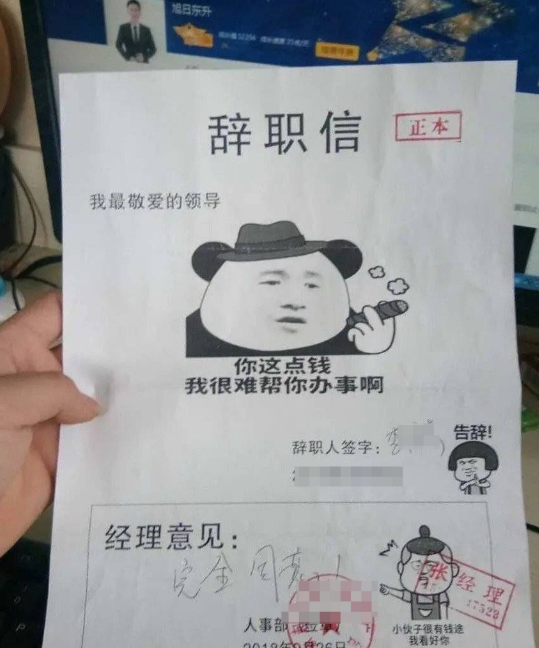 旭日东升
辞职信
正本
我最敬爱的领导
你这点钱
我很难帮你办事啊
辞职人签字：李
告辞!
经理意见：
完全同意！
张经理
17523
人事部
小伙子很有钱途
我看好你